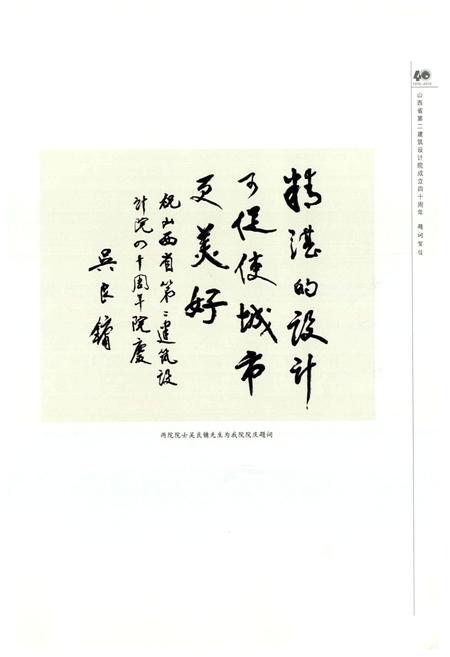 精湛的设计
可促使城市
更美好
祝山西省第二建筑设
计院四十周年院庆
吴良镛
两院院士吴良镛先生为我院院庆题词
40
1970-2010
山西省第二建筑设计院成立四十周年 题词贺信